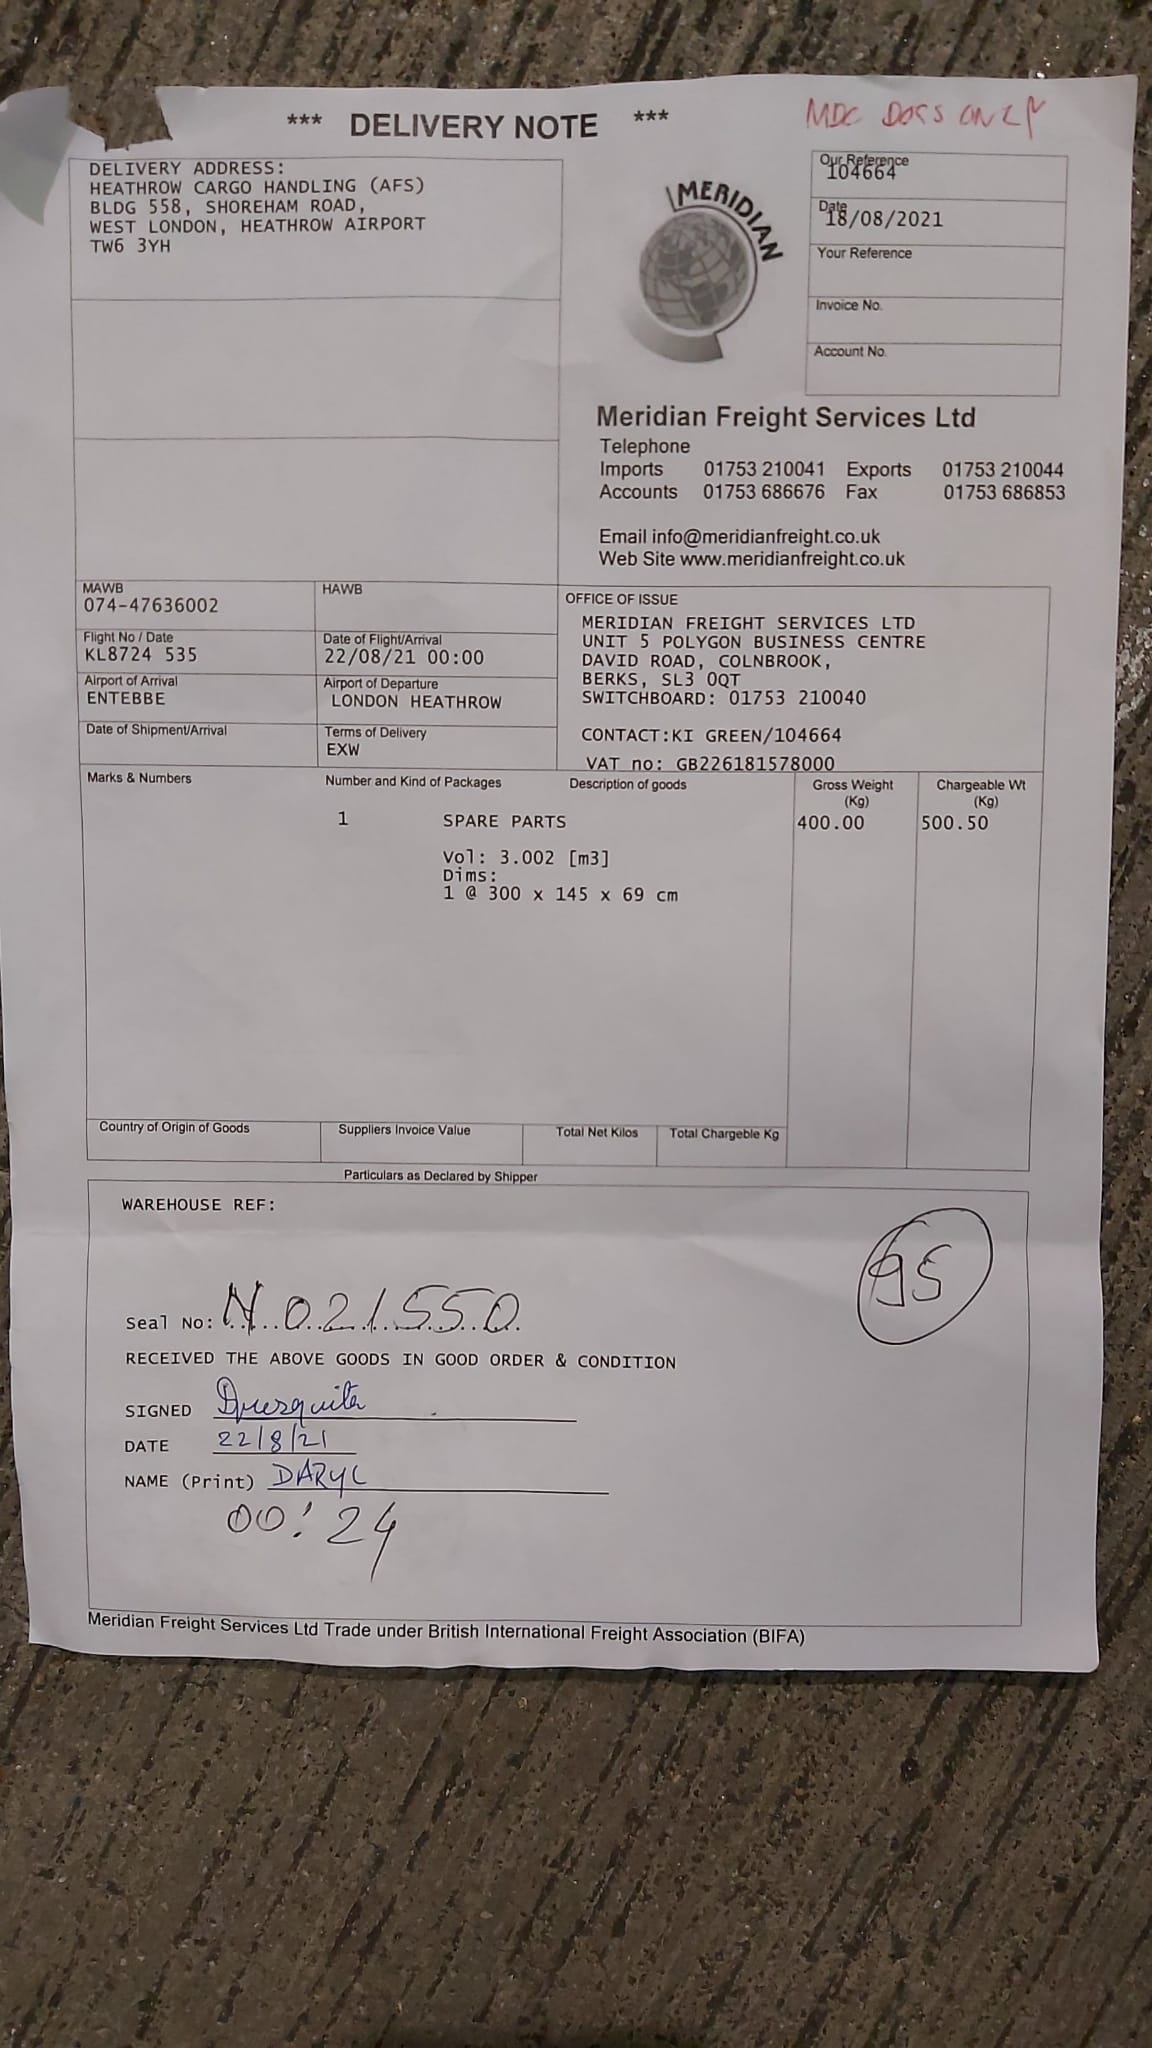 MDC DOCS ONLY
*** DELIVERY NOTE ***
DELIVERY ADDRESS:
HEATHROW CARGO HANDLING (AFS)
BLDG 558, SHOREHAM ROAD,
WEST LONDON, HEATHROW AIRPORT
TW6 3YH
MERIDIAN
Our Reference
104664
Date
18/08/2021
Your Reference
Invoice No.
Account No.
Meridian Freight Services Ltd
Telephone
Imports 01753 210041 Exports 01753 210044
Accounts 01753 686676 Fax 01753 686853
Email info@meridianfreight.co.uk
Web Site www.meridianfreight.co.uk
MAWB HAWB
074-47636002
Flight No / Date Date of Flight/Arrival
KL8724 535 22/08/21 00:00
Airport of Arrival Airport of Departure
ENTEBBE LONDON HEATHROW
Date of Shipment/Arrival Terms of Delivery
EXW
OFFICE OF ISSUE
MERIDIAN FREIGHT SERVICES LTD
UNIT 5 POLYGON BUSINESS CENTRE
DAVID ROAD, COLNBROOK,
BERKS, SL3 0QT
SWITCHBOARD: 01753 210040
CONTACT:KI GREEN/104664
VAT no: GB226181578000
Marks & Numbers Number and Kind of Packages Description of goods Gross Weight (Kg) Chargeable Wt (Kg)
1 SPARE PARTS 400.00 500.50
Vol: 3.002 [m3]
Dims:
1 @ 300 x 145 x 69 cm
Country of Origin of Goods Suppliers Invoice Value Total Net Kilos Total Chargeble Kg
Particulars as Declared by Shipper
WAREHOUSE REF:
95
Seal No: N021550
RECEIVED THE ABOVE GOODS IN GOOD ORDER & CONDITION
SIGNED
DATE 22/8/21
NAME (Print) DARYL
00:24
Meridian Freight Services Ltd Trade under British International Freight Association (BIFA)